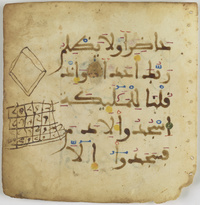 حاضرا ولا يظلم
ربك احدا واذ
قلنا للمليكة
اسجدوا لادم
فسجدوا الا